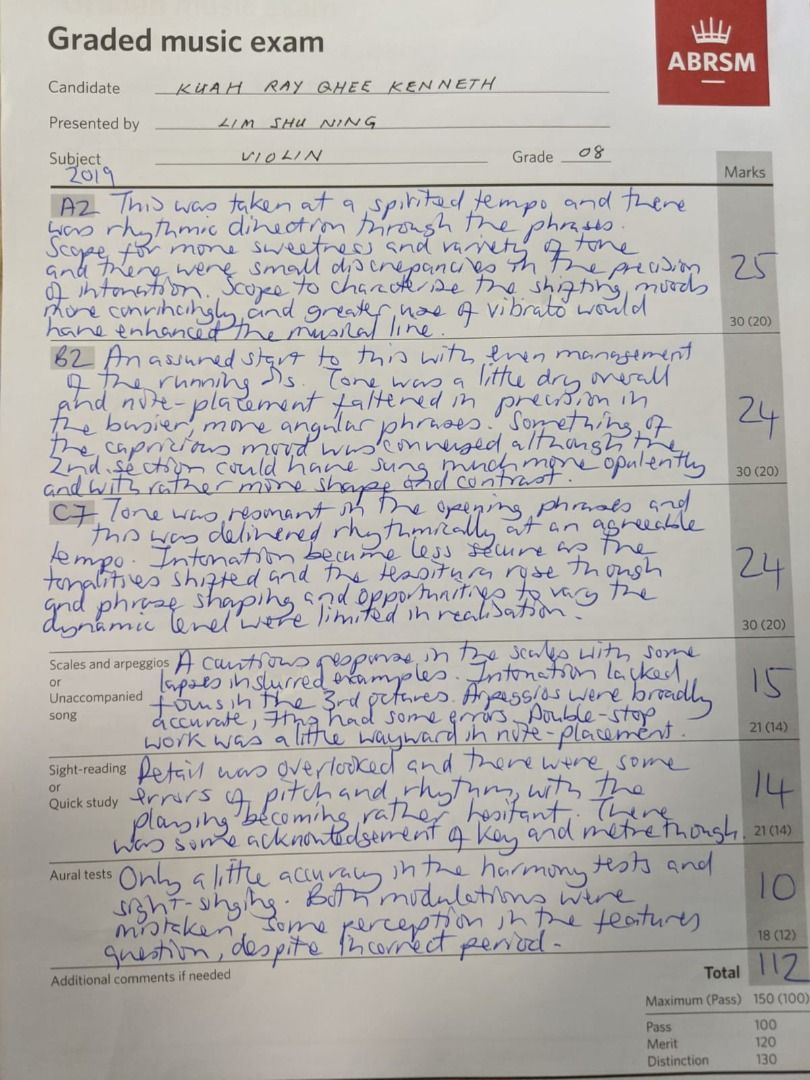 Graded music exam
ABRSM
Candidate KUAH RAY GHEE KENNETH
Presented by LIM SHU NING
Subject VIOLIN Grade 08
2019
Marks
A2 This was taken at a spirited tempo and there
was rhythmic direction through the phrases.
Scope for more sweetness and variety of tone
and there were small discrepancies in the precision
of intonation. Scope to characterise the shifting moods
more convincingly and greater use of vibrato would
have enhanced the musical line.
25
30 (20)
B2 An assured start to this with even management
of the running
Tone was a little dry overall
and note-placement faltered in precision in
the busier, more angular phrases. Something of
the capricious mood was conveyed although the
2nd section could have sung much more opulently
and with rather more shape and contrast.
24
30 (20)
C7 Tone was resonant in the opening phrases and
this was delivered rhythmically at an agreeable
tempo. Intonation became less secure as the
tonalities shifted and the tessitura rose though
and phrase shaping and opportunities to vary the
dynamic level were limited in realisation.
24
30 (20)
Scales and arpeggios
or
Unaccompanied
song
A cautious response in the scales with some
lapses in slurred examples. Intonation lacked
focus in the 3rd octaves. Arpeggios were broadly
accurate, 7ths had some errors. Double-stop
work was a little wayward in note-placement.
15
21 (14)
Sight-reading
or
Quick study
Detail was overlooked and there were some
errors of pitch and rhythm, with the
playing becoming rather hesitant. There
was some acknowledgement of key and metre though.
14
21 (14)
Aural tests
Only a little accuracy in the harmony tests and
sight-singing. Both modulations were
mistaken. Some perception in the features
question, despite incorrect period.
10
18 (12)
Additional comments if needed
Total 112
Maximum (Pass) 150 (100)
Pass 100
Merit 120
Distinction 130